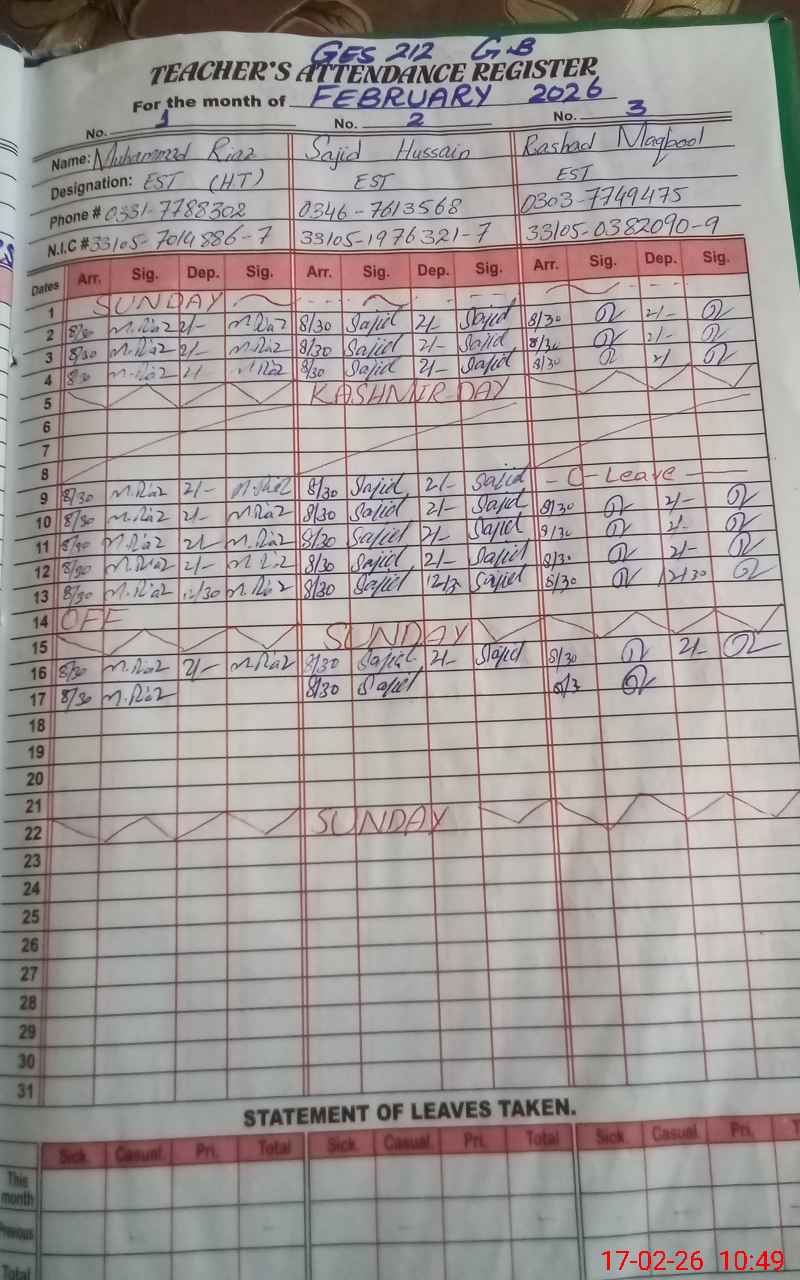 GES 212 G.B
TEACHER'S ATTENDANCE REGISTER
For the month of FEBRUARY 2026
No. 1 No. 2 No. 3
Name: Muhammad Riaz Sajid Hussain Rashad Maqbool
Designation: EST (HT) EST EST
Phone # 0331-7788302 0346-7613568 0303-7749475
N.I.C # 33105-7014886-7 33105-1976321-7 33105-0382090-9
Dates Arr. Sig. Dep. Sig. Arr. Sig. Dep. Sig. Arr. Sig. Dep. Sig.
1 SUNDAY
2 8/30 M.Riaz 2/- M.Riaz 8/30 Sajid 2/- Sajid 8/30 2/-
3 8/30 M.Riaz 2/- M.Riaz 8/30 Sajid 2/- Sajid 8/30 2/-
4 8/30 M.Riaz 2/- M.Riaz 8/30 Sajid 2/- Sajid 8/30 2/
5 KASHMIR-DAY
6
7
8
9 8/30 M.Riaz 2/- 8/30 Sajid 2/- Sajid - C-Leave -
10 8/30 M.Riaz 2/- M.Riaz 8/30 Sajid 2/- Sajid 8/30 2/-
11 8/30 M.Riaz 2/- M.Riaz 8/30 Sajid 2/- Sajid 8/30 2/-
12 8/30 M.Riaz 2/- M.Riaz 8/30 Sajid 2/- Sajid 8/30 2/-
13 8/30 M.Riaz 12/30 M.Riaz 8/30 Sajid 12/3 Sajid 8/30 12/30
14 OFF
15 SUNDAY
16 8/30 M.Riaz 2/- M.Riaz 8/30 Sajid 2/- Sajid 8/30 2/-
17 8/30 M.Riaz 8/30 Sajid 8/3
18
19
20
21
22 SUNDAY
23
24
25
26
27
28
29
30
31
STATEMENT OF LEAVES TAKEN.
Sick. Casual. Pri. Total Sick. Casual. Pri. Total Sick. Casual. Pri. T
This month
Previous
Total
17-02-26 10:49